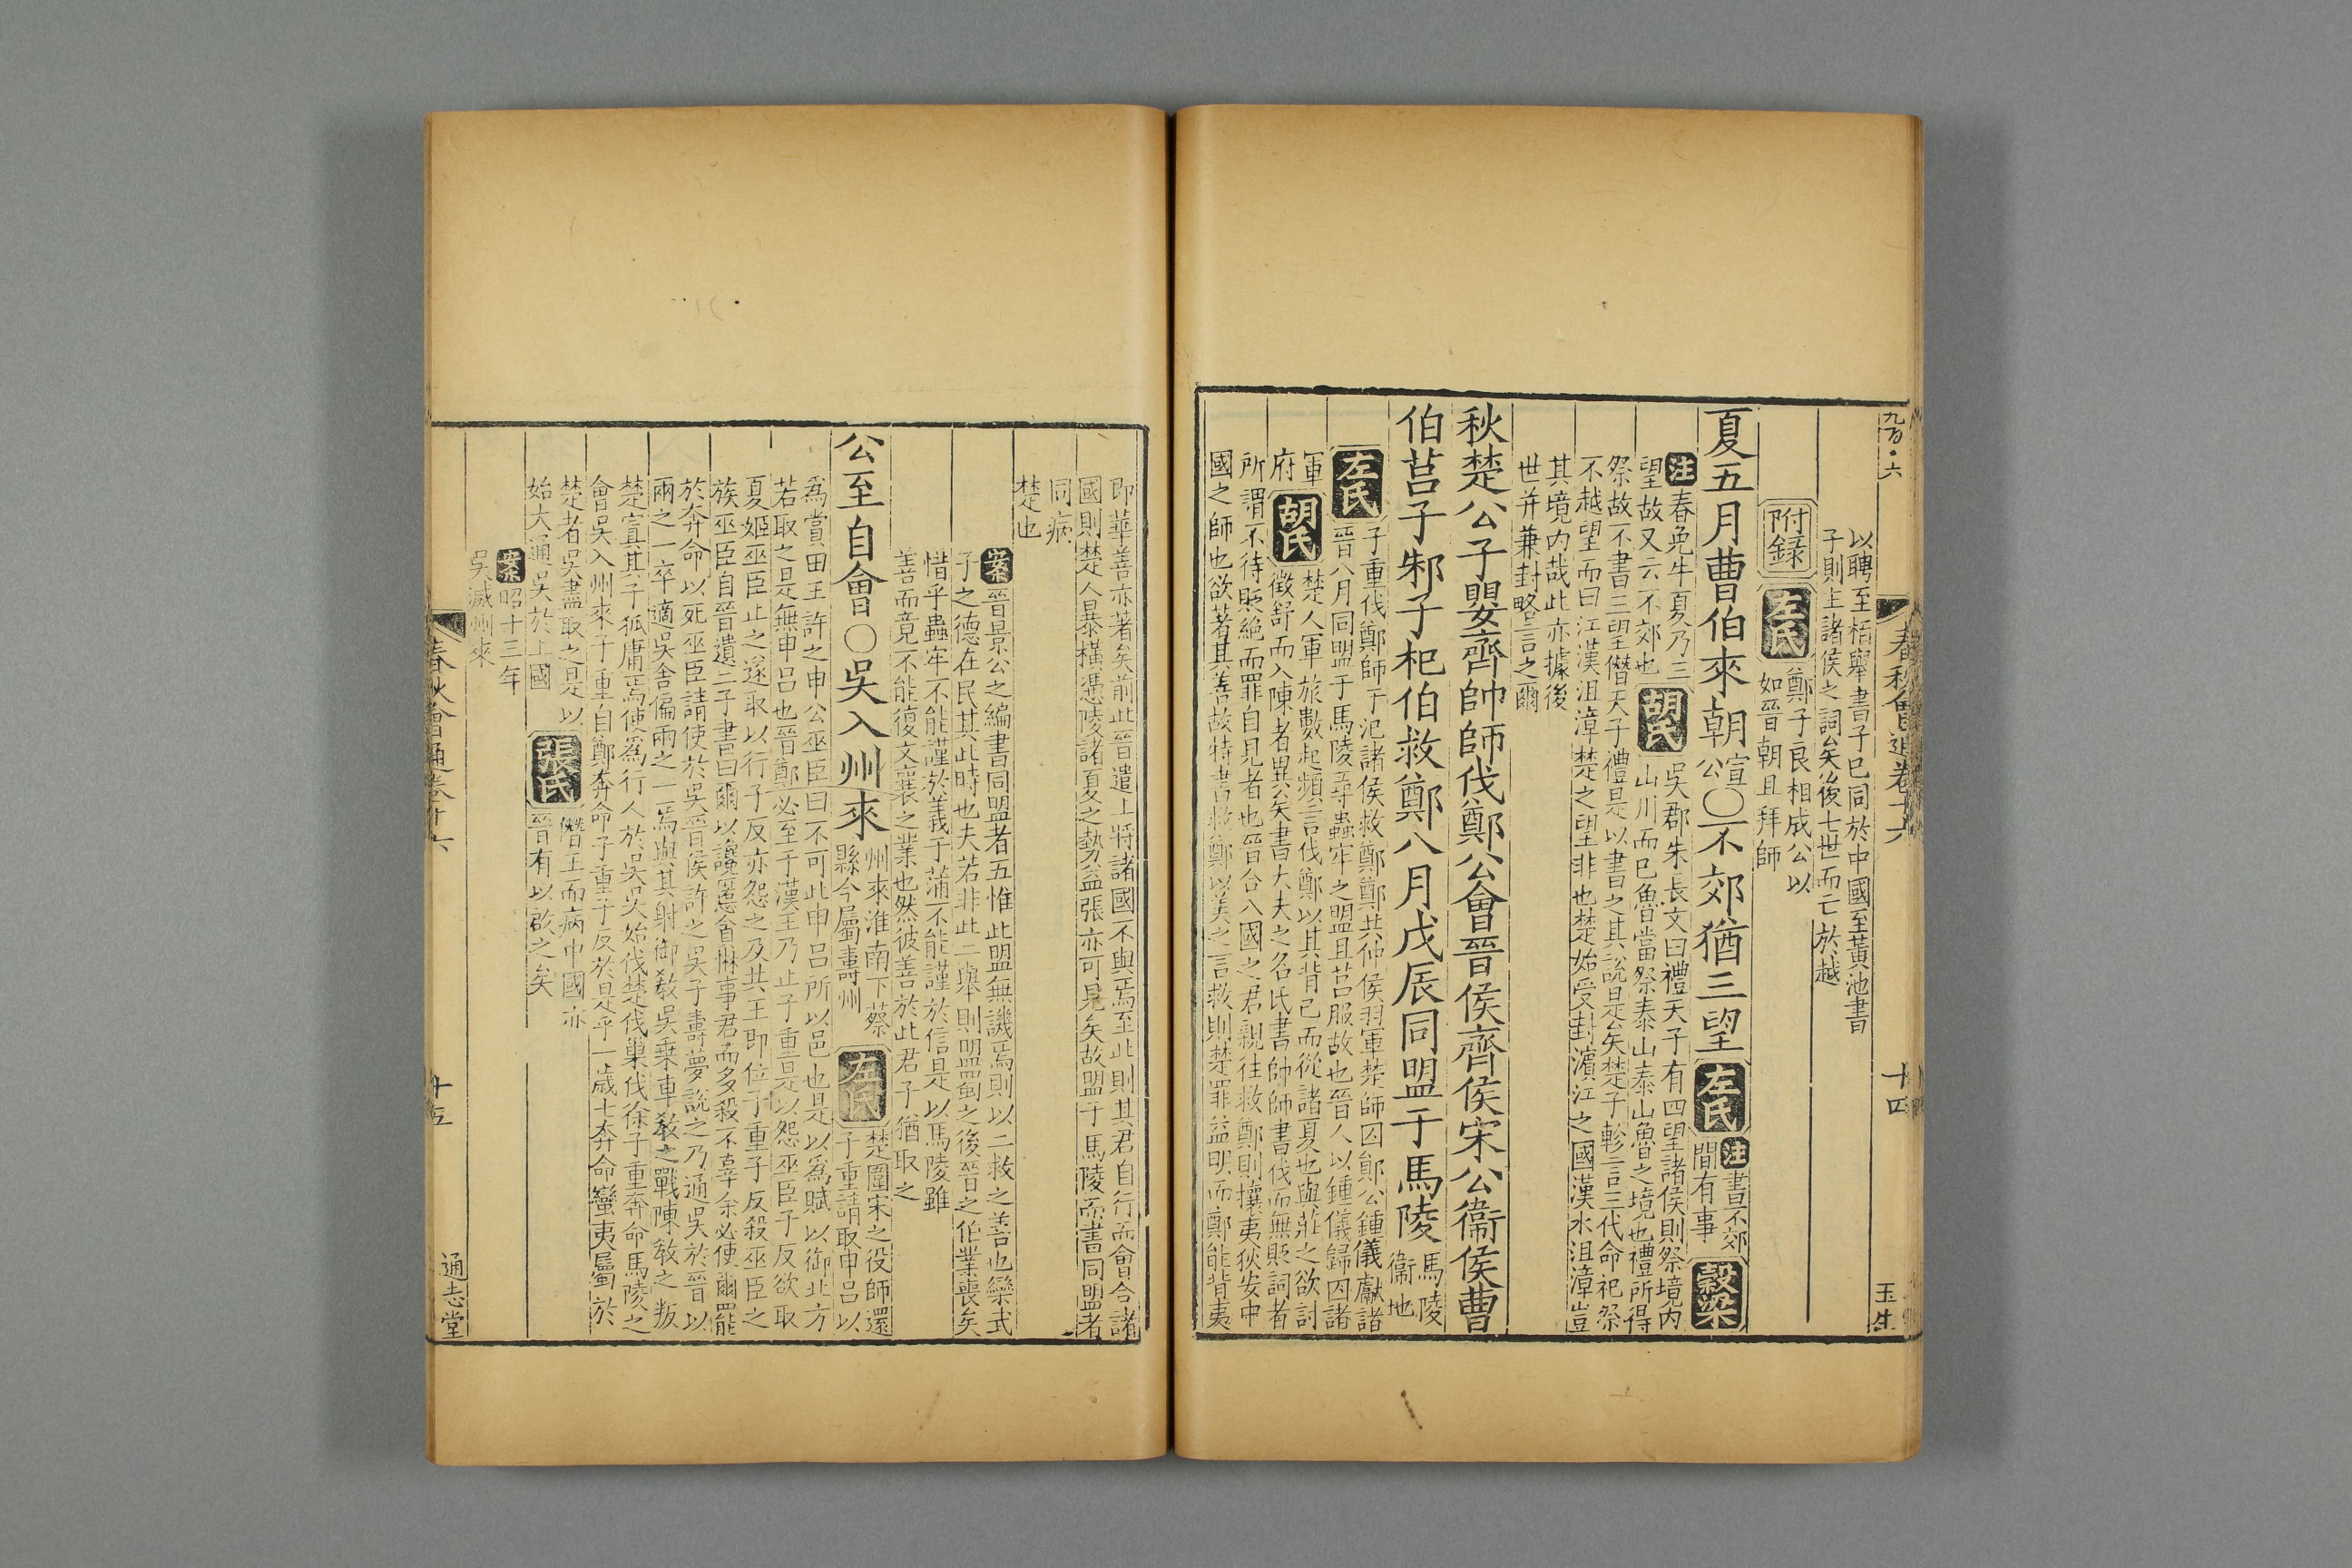 九百·六
春秋會通卷十六
十四
玉生
以聘至栢舉書子巳同於中國至黃池書
子則主諸侯之詞矣後七世而亡於越
附錄 左氏 鄭子良相成公以
如晉朝且拜師
夏五月曹伯來朝宣公○不郊猶三望 左氏 注書不郊
間有事 穀梁
注春免牛夏乃三
望故又云不郊也 胡氏 吳郡朱長文曰禮天子有四望諸侯則祭境内
山川而已魯當祭泰山泰山魯之境也禮所得
祭故不書三望僭天子禮是以書之其說是矣楚子軫言三代命祀祭
不越望而曰江漢沮漳楚之望非也楚始受封濵江之國漢水沮漳豈
其境内哉此亦據後
世并兼封略言之爾
秋楚公子嬰齊帥師伐鄭公會晉侯齊侯宋公衞侯曹
伯莒子邾子杞伯救鄭八月戊辰同盟于馬陵 馬陵
衞地
左氏 子重伐鄭師于汜諸侯救鄭鄭共仲侯羽軍楚師囚鄖公鍾儀獻諸
晉八月同盟于馬陵尋蟲牢之盟且莒服故也晉人以鍾儀歸囚諸
軍
府 胡氏 楚人軍旅數起頻言伐鄭以其背已而從諸夏也與莊之欲討
徵舒而入陳者異矣書大夫之名氏書帥師書伐而無貶詞者
所謂不待貶絶而罪自見者也晉合八國之君親往救鄭則攘夷狄安中
國之師也欲著其善故特書救鄭以美之言救則楚罪益明而鄭能背夷
即華善亦著矣前此晉遣上將諸國不與焉至此則其君自行而會合諸
國則楚人暴橫憑陵諸夏之勢益張亦可見矣故盟于馬陵而書同盟者
同病
楚也
案 晉景公之編書同盟者五惟此盟無譏焉則以二救之善也欒武
子之德在民其此時也夫若非此二舉則盟蜀之後晉之伯業喪矣
惜乎蟲牢不能謹於義于蒲不能謹於信是以馬陵雖
善而竟不能復文襄之業也然彼善於此君子猶取之
公至自會○吳入州來 州來淮南下蔡
縣今屬壽州 左氏 楚圍宋之役師還
子重請取申吕以
爲賞田王許之申公巫臣曰不可此申吕所以邑也是以爲賦以御北方
若取之是無申吕也晉鄭必至于漢王乃止子重是以怨巫臣子反欲取
夏姬巫臣止之遂取以行子反亦怨之及共王即位子重子反殺巫臣之
族巫臣自晉遺二子書曰爾以讒慝貪惏事君而多殺不辜余必使爾罷
於奔命以死巫臣請使於吳晉侯許之吳子壽夢說之乃通吳於晉以
兩之一卒適吳舍偏兩之一焉與其射御敎吳乗車敎之戰陳敎之叛
楚寘其子狐庸焉使爲行人於吳吳始伐楚伐巢伐徐子重奔命馬陵之
會吳入州來子重自鄭奔命子重子反於是乎一歲七奔命蠻夷屬於
楚者吳盡取之是以
始大通吳於上國 張氏 僭王而病中國亦
晉有以啟之矣
案 昭十三年
吳滅州來
春秋會通卷十六
十五
通志堂